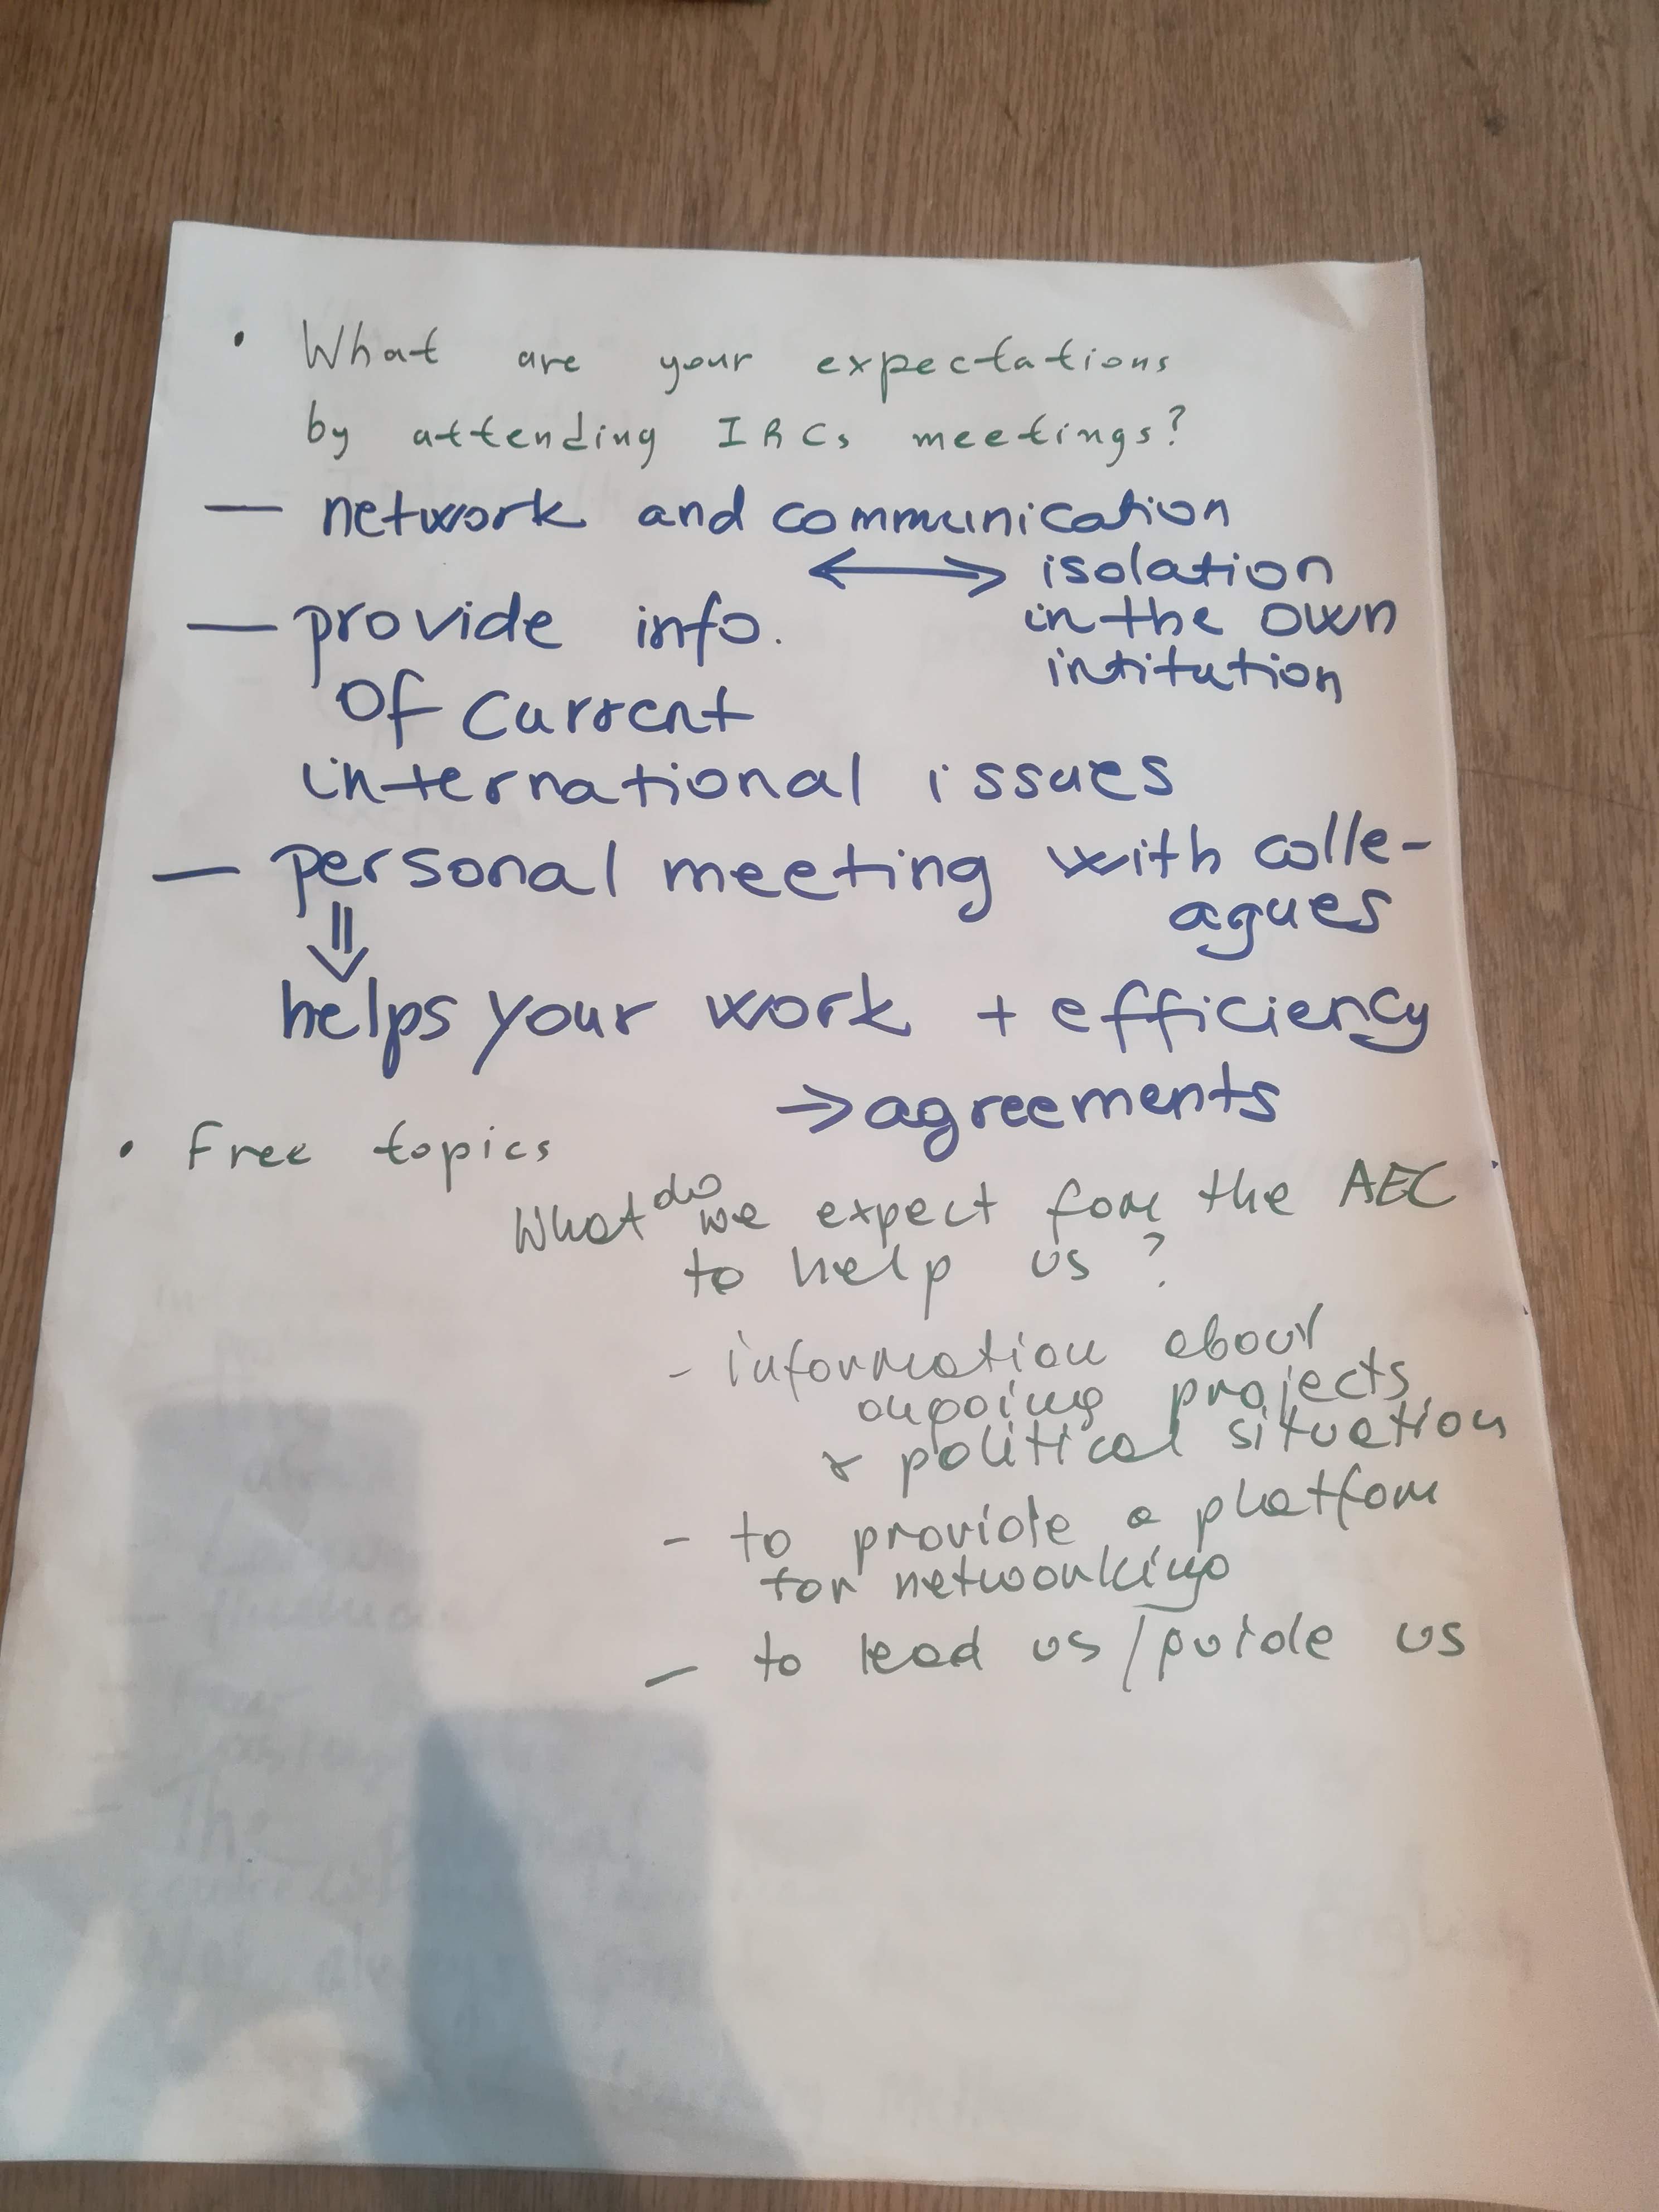 • What are your expectations
by attending IRCs meetings?
— network and communication
⟷ isolation
in the own
intitution
— provide info.
of current
international issues
— personal meeting with colle-
agues
⇓
helps your work + efficiency
→ agreements
• Free topics
What do we expect fom the AEC
to help us?
- information about
ongoing projects
& political situation
- to provide a platfom
for networking
- to lead us / guide us